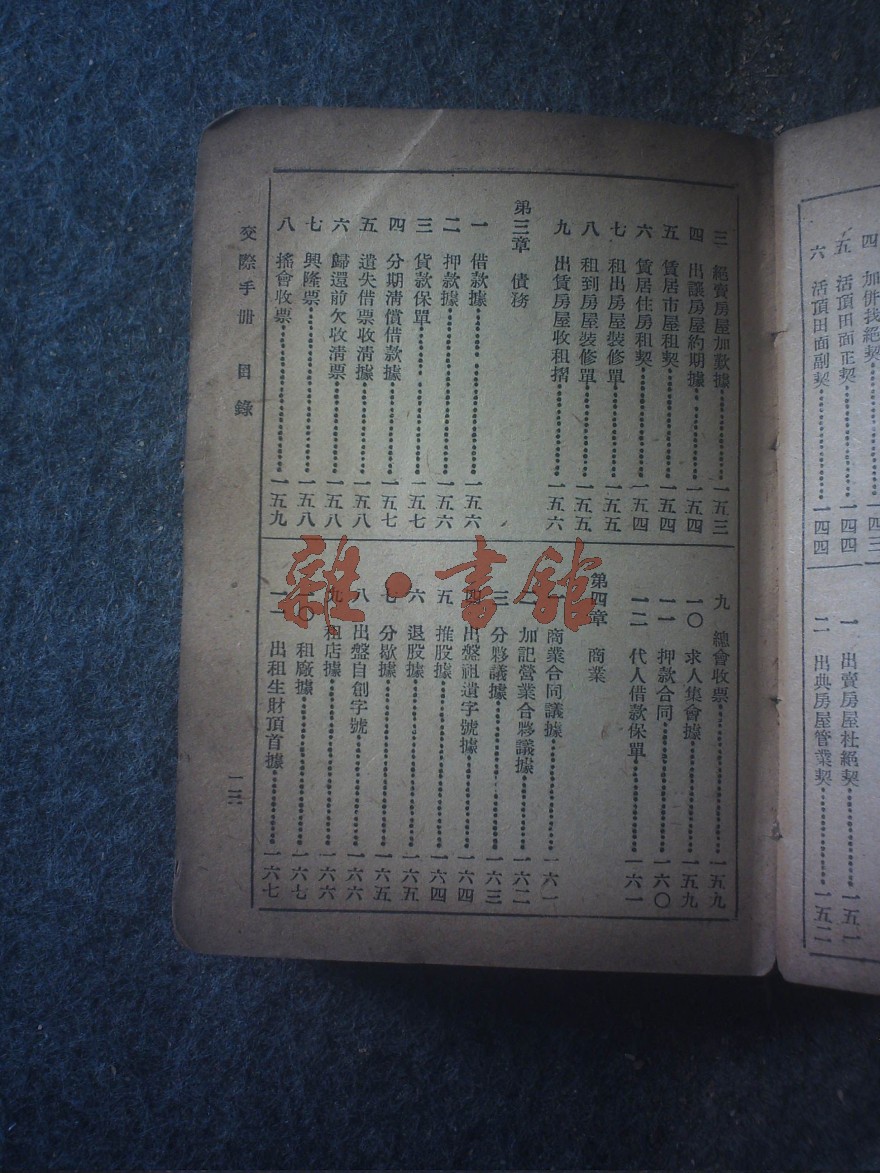 四　加併找絕契　一四三
五　活頂田面正契　一四四
六　活頂田面副契　一四四
一　出賣房屋杜絕契　一五一
二　出典房屋管業契　一五二
三　絕賣房屋加歎據　一五三
四　出讓房屋約期據　一五四
五　賃居市屋租契　一五四
六　賃居住房租契　一五四
七　租出房屋裝修單　一五五
八　租到房屋裝修單　一五五
九　出賃房屋收租摺　一五六
第三章　債務
一　借款據　一五六
二　押款據　一五六
三　貨款保單　一五七
四　分期清償借款據　一五七
五　遺失借票收清據　一五八
六　歸還前欠收清票　一五八
七　興隆票　一五八
八　搖會收票　一五九
九　總會收票　一五九
一〇　求人集會據　一五九
一一　押款合同　一六〇
一二　代人借款保單　一六一
第四章　商業
一　商業合同議據　一六一
二　加記營業合夥議據　一六二
三　分夥議據　一六三
四　出盤祖遺字號據　一六四
五　推股據　一六四
六　退股據　一六五
七　分歇據　一六五
八　出盤自創字號　一六六
九　租店據　一六六
一〇　租廠據　一六七
一一　出租生財頂首據　一六七
交際手册　目錄
雜·書館